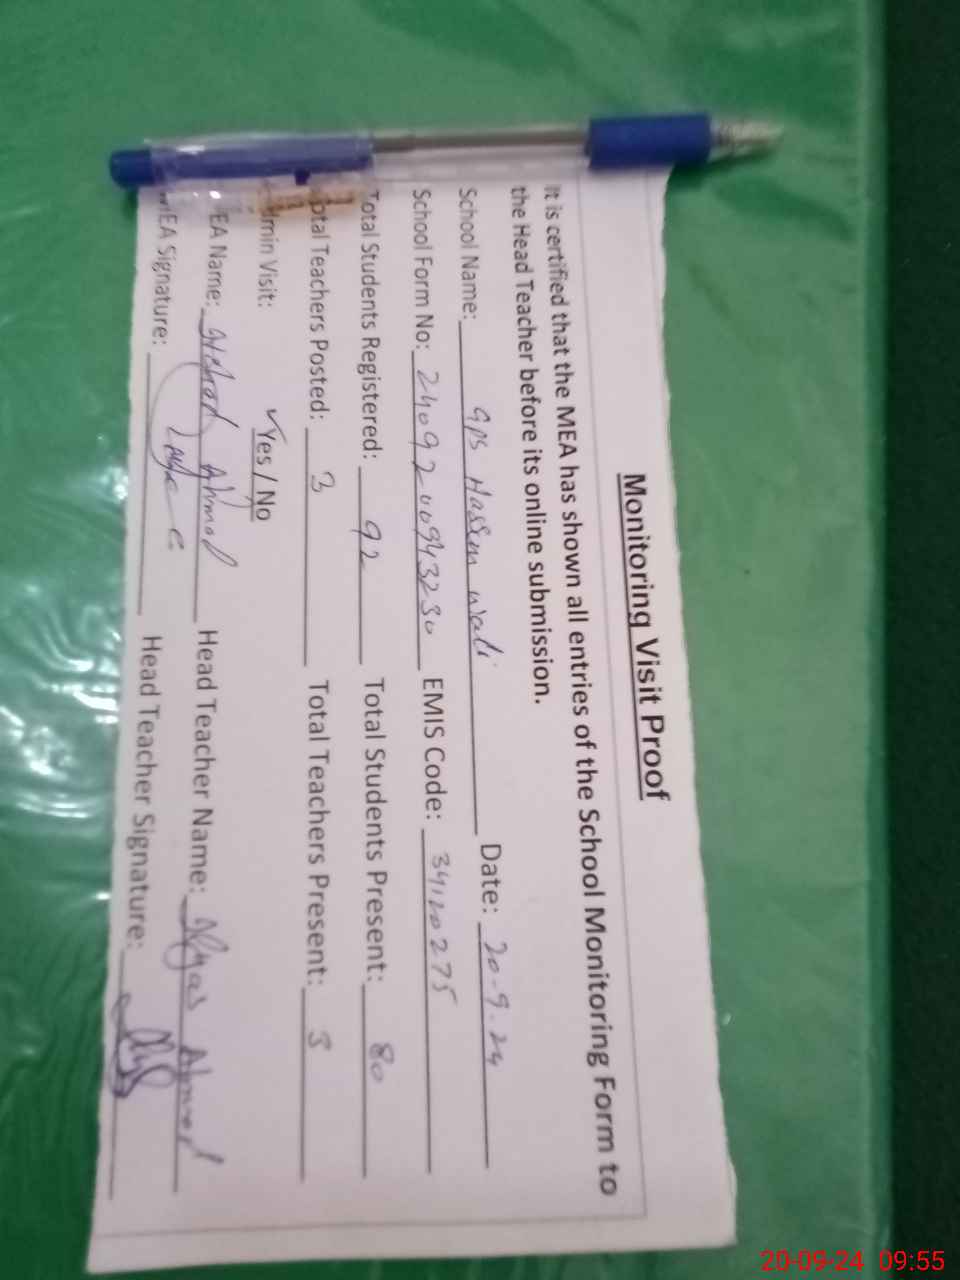 Monitoring Visit Proof
It is certified that the MEA has shown all entries of the School Monitoring Form to
the Head Teacher before its online submission.
School Name: GPS Hassan wali Date: 20-9-24
School Form No: 2409200943230 EMIS Code: 34120275
Total Students Registered: 92 Total Students Present: 80
otal Teachers Posted: 3 Total Teachers Present: 3
dmin Visit: ✓Yes / No
EA Name: Ahmad Head Teacher Name: Ilyas Ahmad
MEA Signature: Head Teacher Signature:
20-09-24 09:55